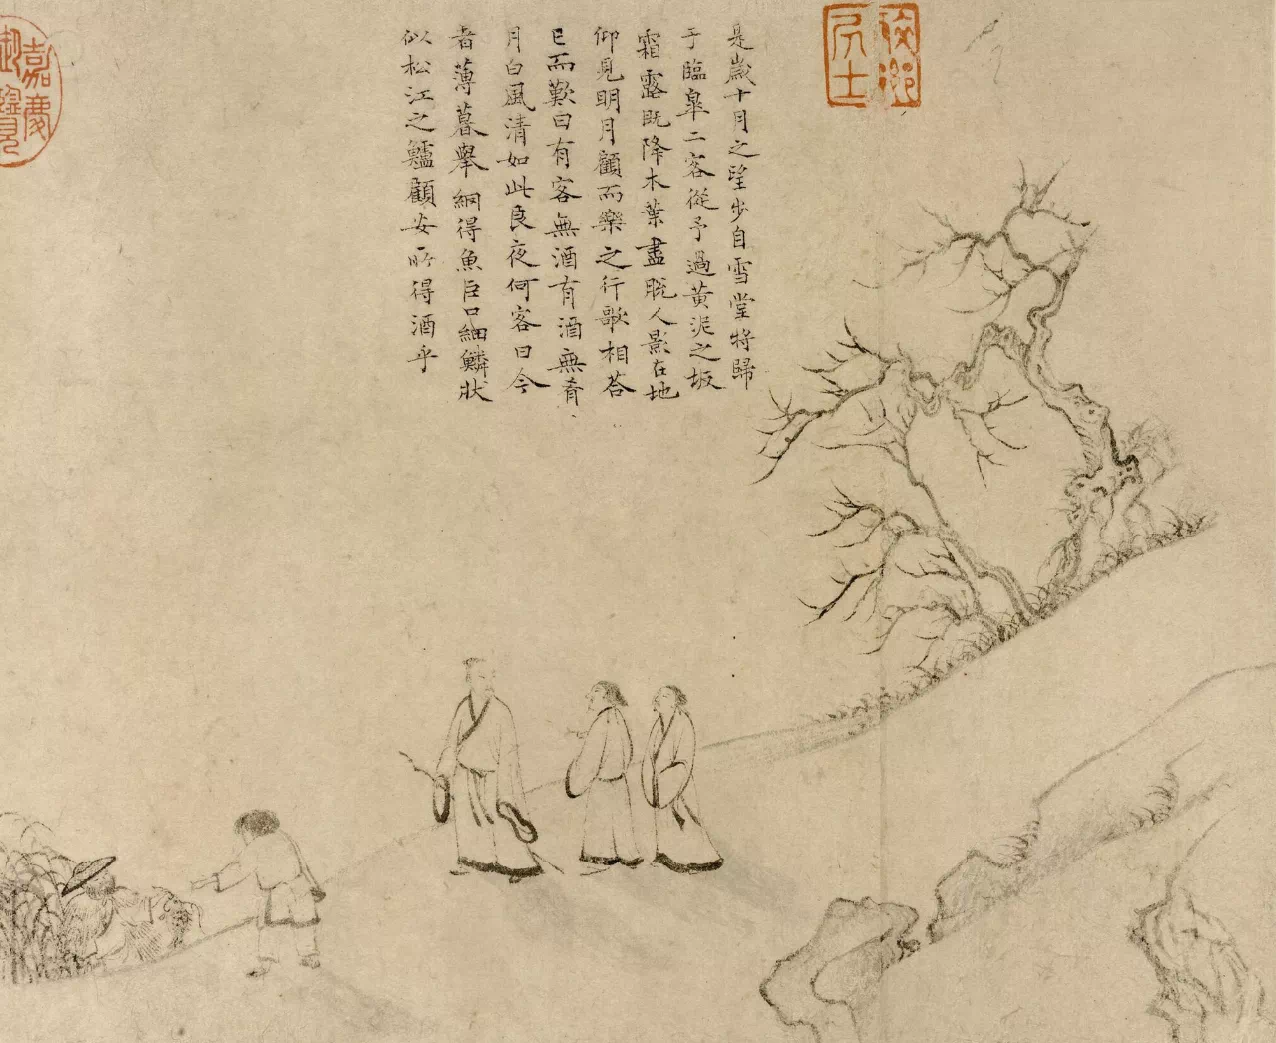 是歲十月之望步自雪堂將歸
于臨皐二客從予過黃泥之坂
霜露既降木葉盡脫人影在地
仰見明月顧而樂之行歌相荅
已而歎曰有客無酒有酒無肴
月白風清如此良夜何客曰今
者薄暮舉網得魚巨口細鱗狀
似松江之鱸顧安所得酒乎
嘉慶
御覽